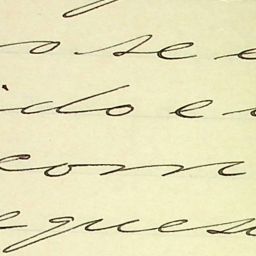 o se e
ido e
com
eques